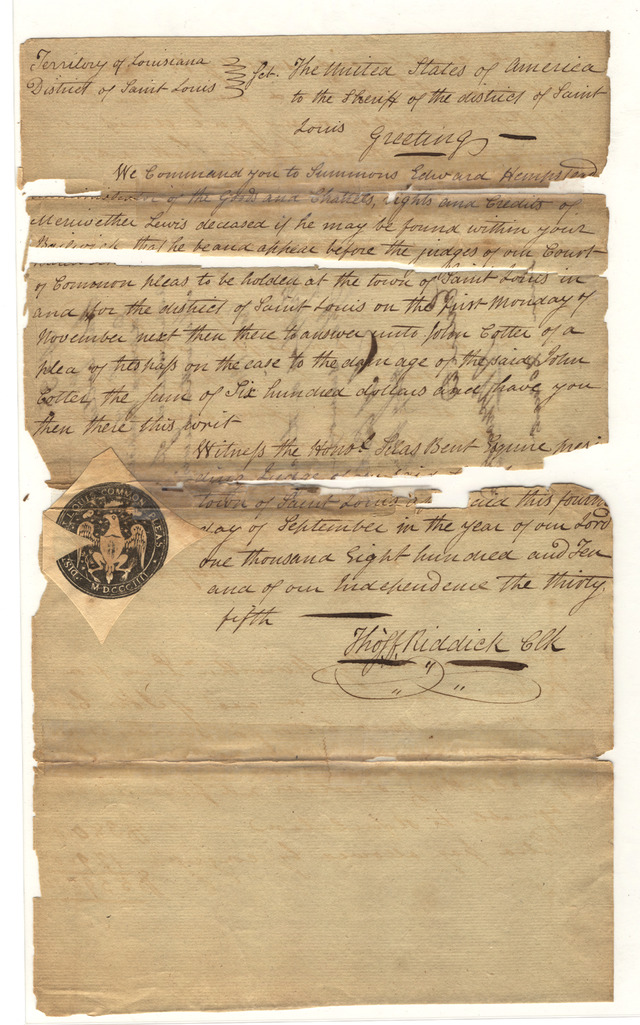 Territory of Louisiana
District of Saint Louis
Sct. The United States of America
to the Sheriff of the district of Saint
Louis Greeting
We Command you to Summons Edward Hempstead
of the Goods and Chattels, rights and Credits of
Meriwether Lewis deceased if he may be found within your
Bailiwick that he be and appear before the judges of our Court
of Common pleas to be holden at the town of Saint Louis in
and for the district of Saint Louis on the first Monday of
November next then there to answer unto John Cotter of a
plea of trespass on the case to the damage of the said John
Cotter the sum of Six hundred dollars and have you
then there this writ
Witness the Honol. Silas Bent Esquire presi
town of Saint Louis this fourth
day of September in the year of our Lord
one thousand Eight hundred and Ten
and of our Independence the thirty
fifth
Thos. F. Riddick Clk
LOUIS COMMON PLEAS
DIST.